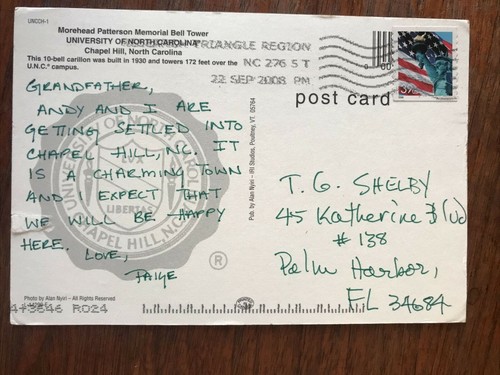 UNCCH-1
Morehead Patterson Memorial Bell Tower
UNIVERSITY OF NORTH CAROLINA
Chapel Hill, North Carolina
This 10-bell carillon was built in 1930 and towers 172 feet over the
U.N.C. campus.
TRIANGLE REGION
NC 276 5 T
22 SEP 2008 PM
post card
GRANDFATHER,
ANDY AND I ARE
GETTING SETTLED INTO
CHAPEL HILL, NC. IT
IS A CHARMING TOWN
AND I EXPECT THAT
WE WILL BE HAPPY
HERE. LOVE,
PAIGE
UNIVERSITY OF NORTH CAROLINA
LUX
LIBERTAS
CHAPEL HILL, N.C.
®
Pub. by Alan Nyiri – IRI Studios, Poultney, VT. 05764
T. G. SHELBY
45 Katherine Blvd
# 138
Palm Harbor,
FL 34684
Photo by Alan Nyiri – All Rights Reserved